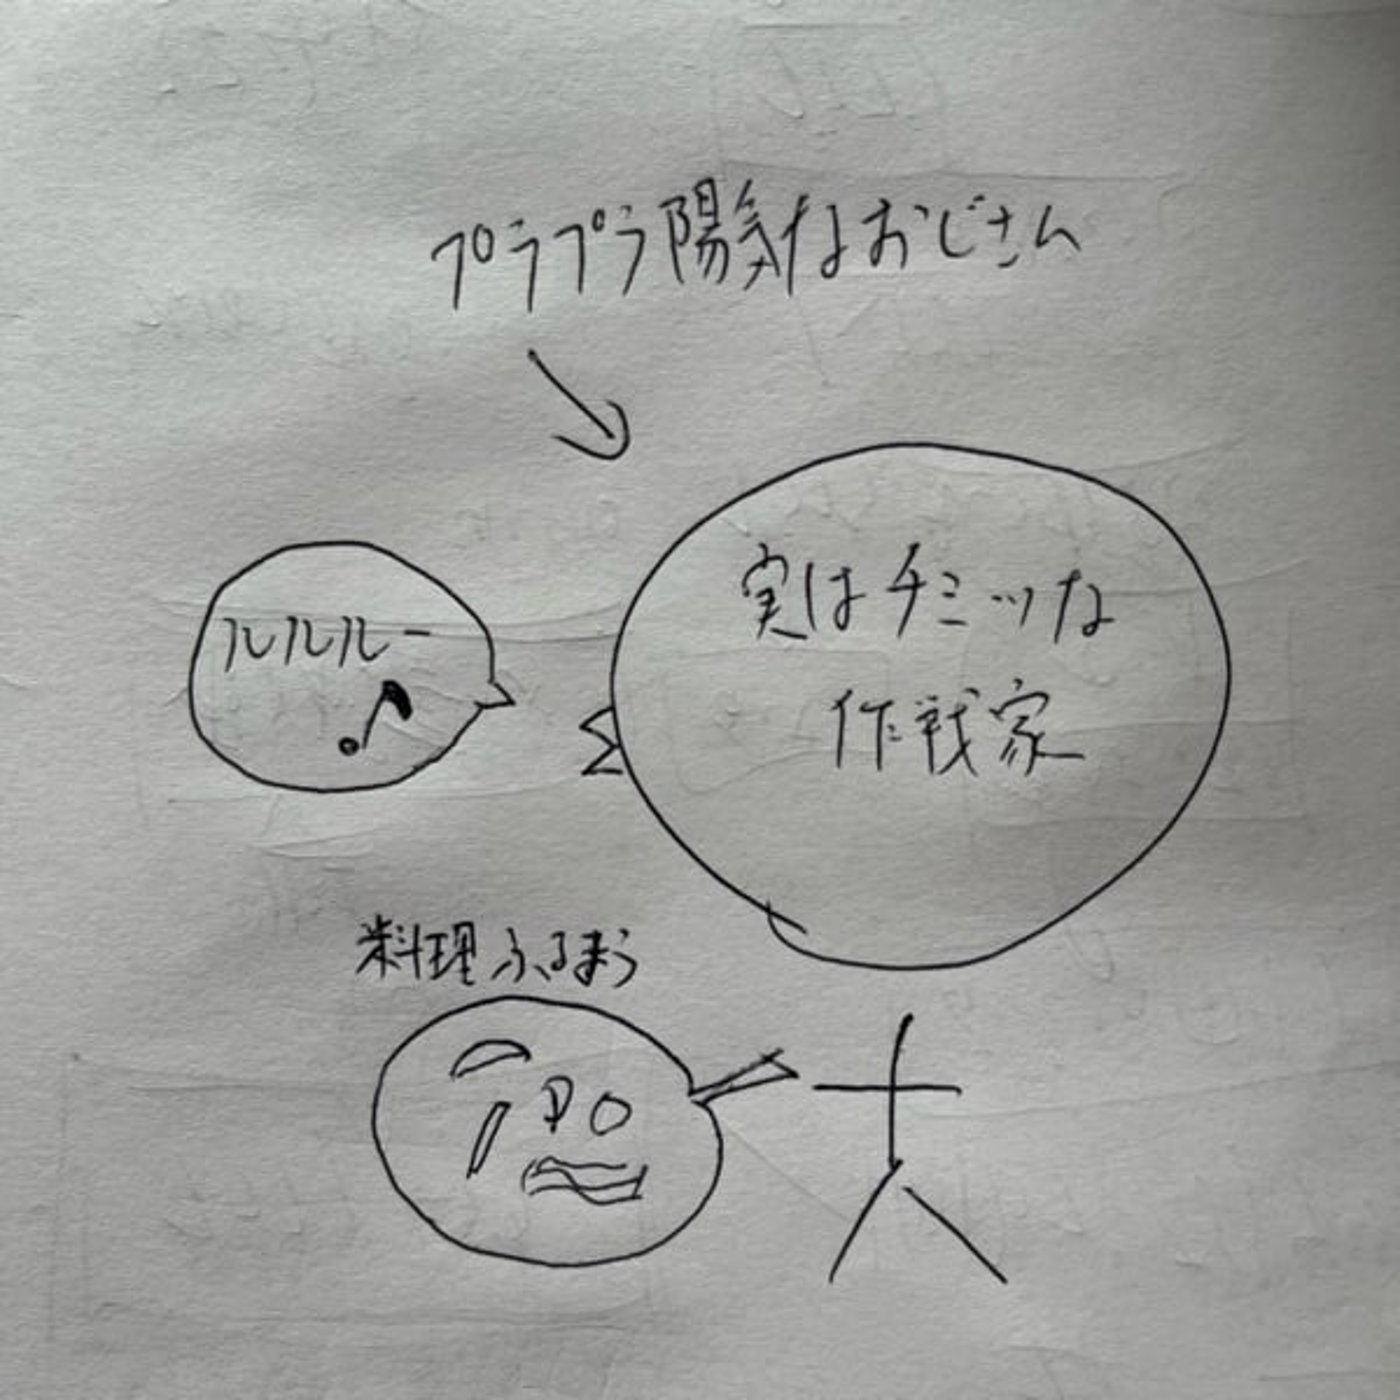 プラプラ陽気なおじさん
実はチミツな
作戦家
ルルルー
料理ふるまう